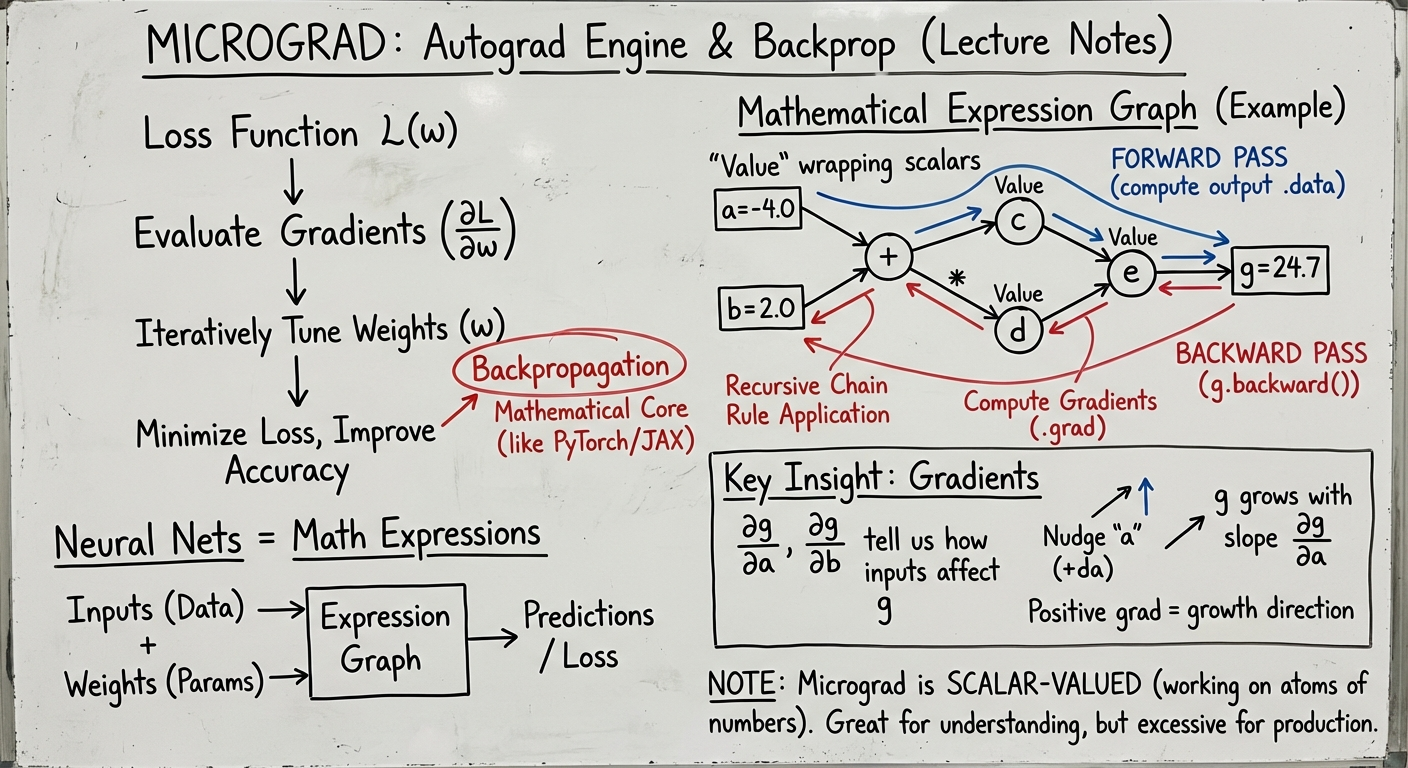 MICROGRAD: Autograd Engine & Backprop (Lecture Notes)
Loss Function L(w)
Evaluate Gradients (∂L/∂w)
Iteratively Tune Weights (w)
Minimize Loss, Improve
Accuracy
Backpropagation
Mathematical Core
(like PyTorch/JAX)
Neural Nets = Math Expressions
Inputs (Data)
+
Weights (Params)
Expression
Graph
Predictions
/ Loss
Mathematical Expression Graph (Example)
"Value" wrapping scalars
FORWARD PASS
(compute output .data)
a=-4.0
b=2.0
+
*
Value
c
Value
d
Value
e
g=24.7
BACKWARD PASS
(g.backward())
Recursive Chain
Rule Application
Compute Gradients
(.grad)
Key Insight: Gradients
∂g/∂a, ∂g/∂b tell us how
inputs affect
g
Nudge "a"
(+da)
g grows with
slope ∂g/∂a
Positive grad = growth direction
NOTE: Micrograd is SCALAR-VALUED (working on atoms of
numbers). Great for understanding, but excessive for production.